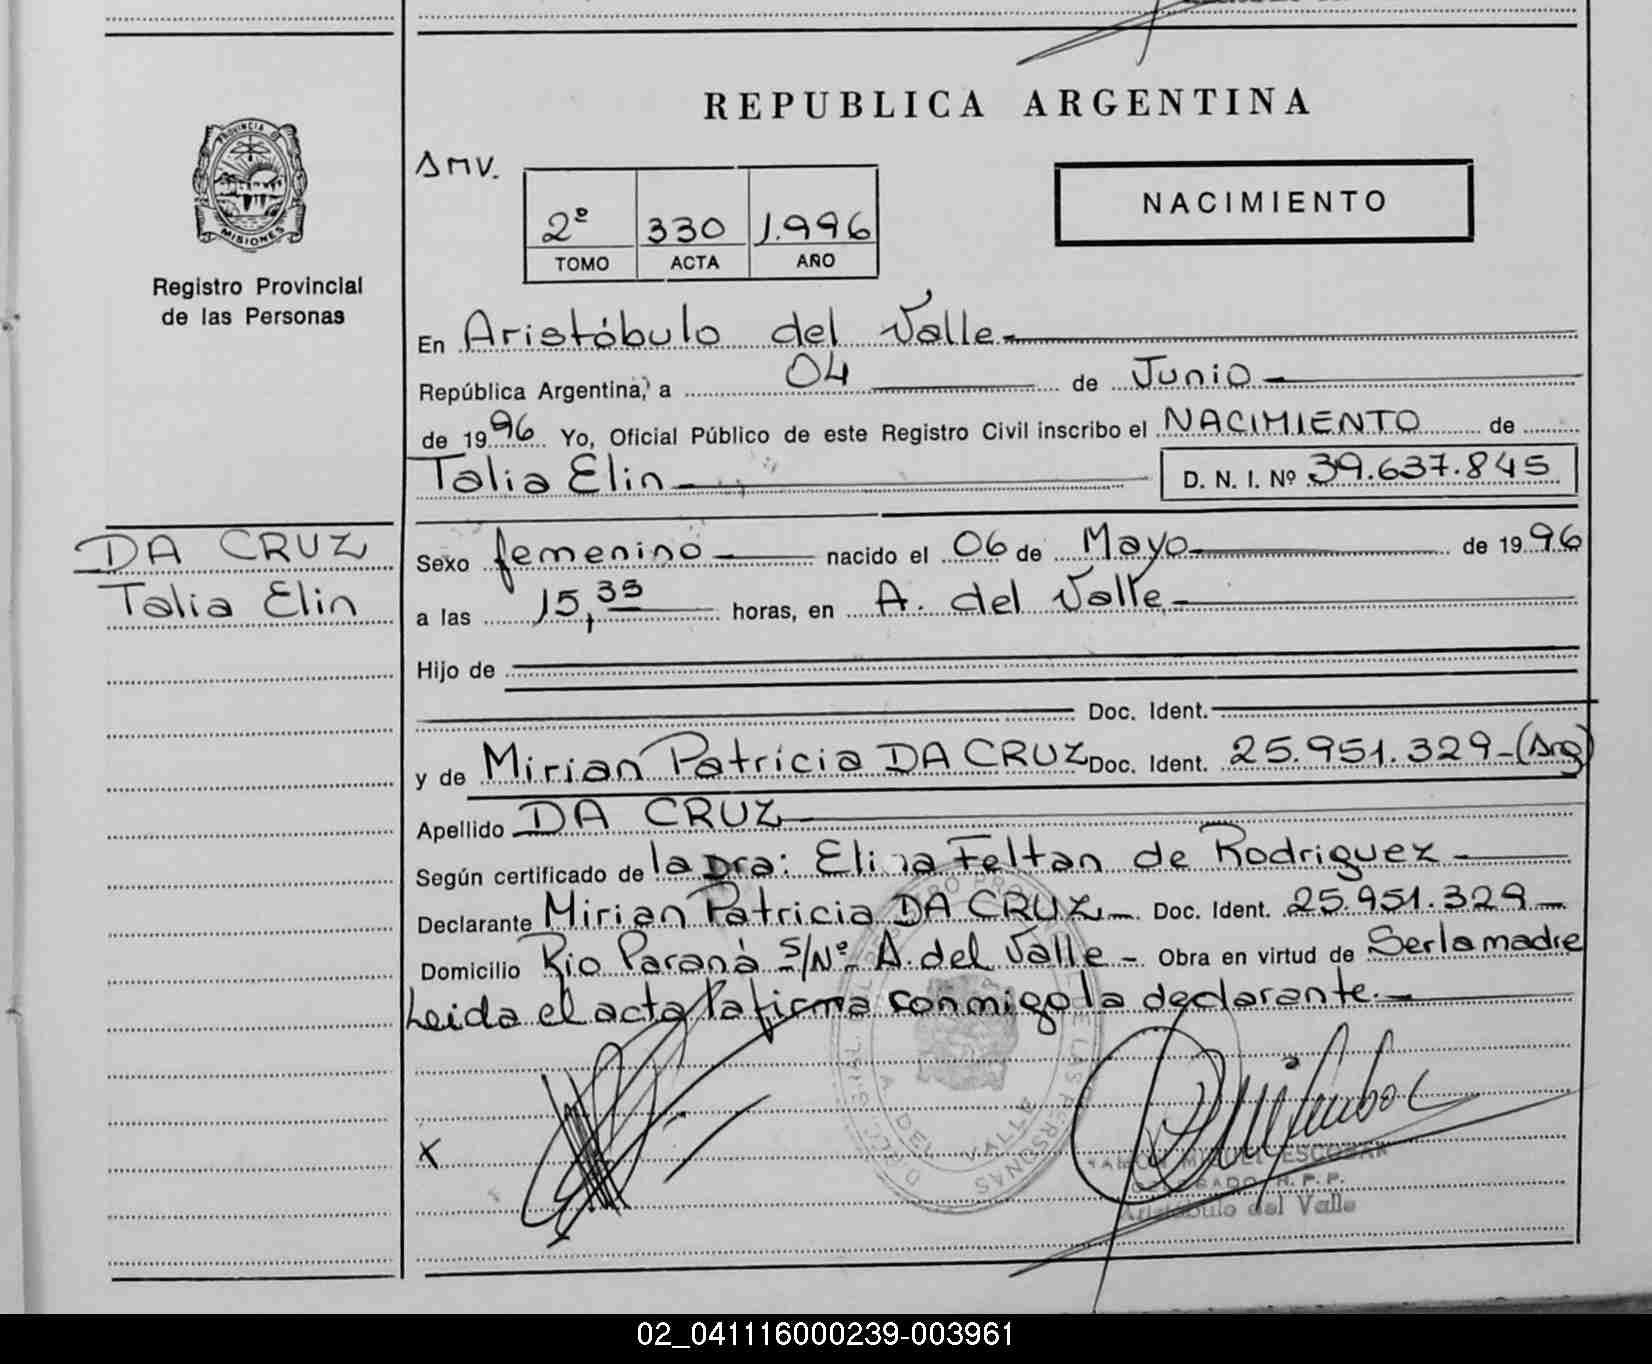 REPUBLICA ARGENTINA
PROVINCIA DE
MISIONES
Registro Provincial
de las Personas
NACIMIENTO
2º 330 1.996
TOMO ACTA AÑO
En Aristóbulo del Valle.-
República Argentina, a 04 de Junio -
de 1996 Yo, Oficial Público de este Registro Civil inscribo el NACIMIENTO de
Talia Elin - D. N. I. Nº 39.637.845
DA CRUZ
Talia Elin
Sexo femenino - nacido el 06 de Mayo - de 1996
a las 15,35 horas, en A. del Valle -
Hijo de
Doc. Ident.
y de Mirian Patricia DA CRUZ Doc. Ident. 25.951.329 - (Arg)
Apellido DA CRUZ
Según certificado de la Dra: Elina Feltan de Rodriguez -
Declarante Mirian Patricia DA CRUZ - Doc. Ident. 25.951.329 -
Domicilio Rio Paraná S/Nº - A. del Valle - Obra en virtud de Ser la madre
Leida el acta la firma conmigo la declarante. -
X
RAMON MIGUEL ESCOBAR
R. P. P.
Aristóbulo del Valle
02_041116000239-003961